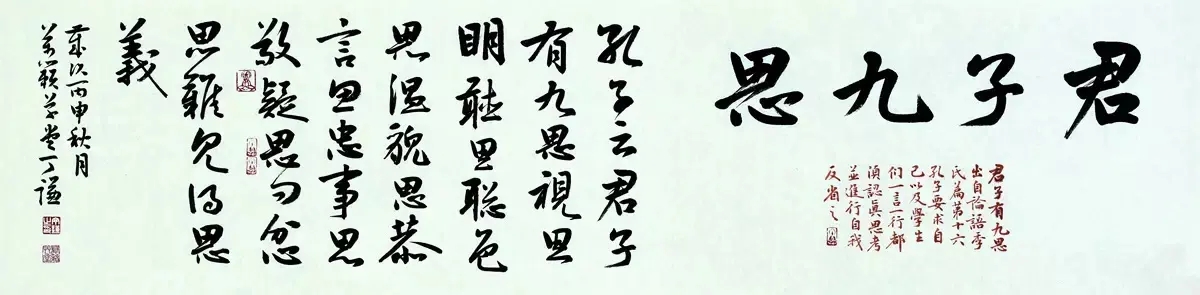 君子九思
君子有九思
出自論語季
氏篇第十六
孔子要求自
己以及學生
们一言一行都
須認真思考
並進行自我
反省之
孔子云君子
有九思視思
明聽思聰色
思温貌思恭
言思忠事思
敬疑思问忿
思難見得思
義
歲次丙申秋月
草堂丁謙